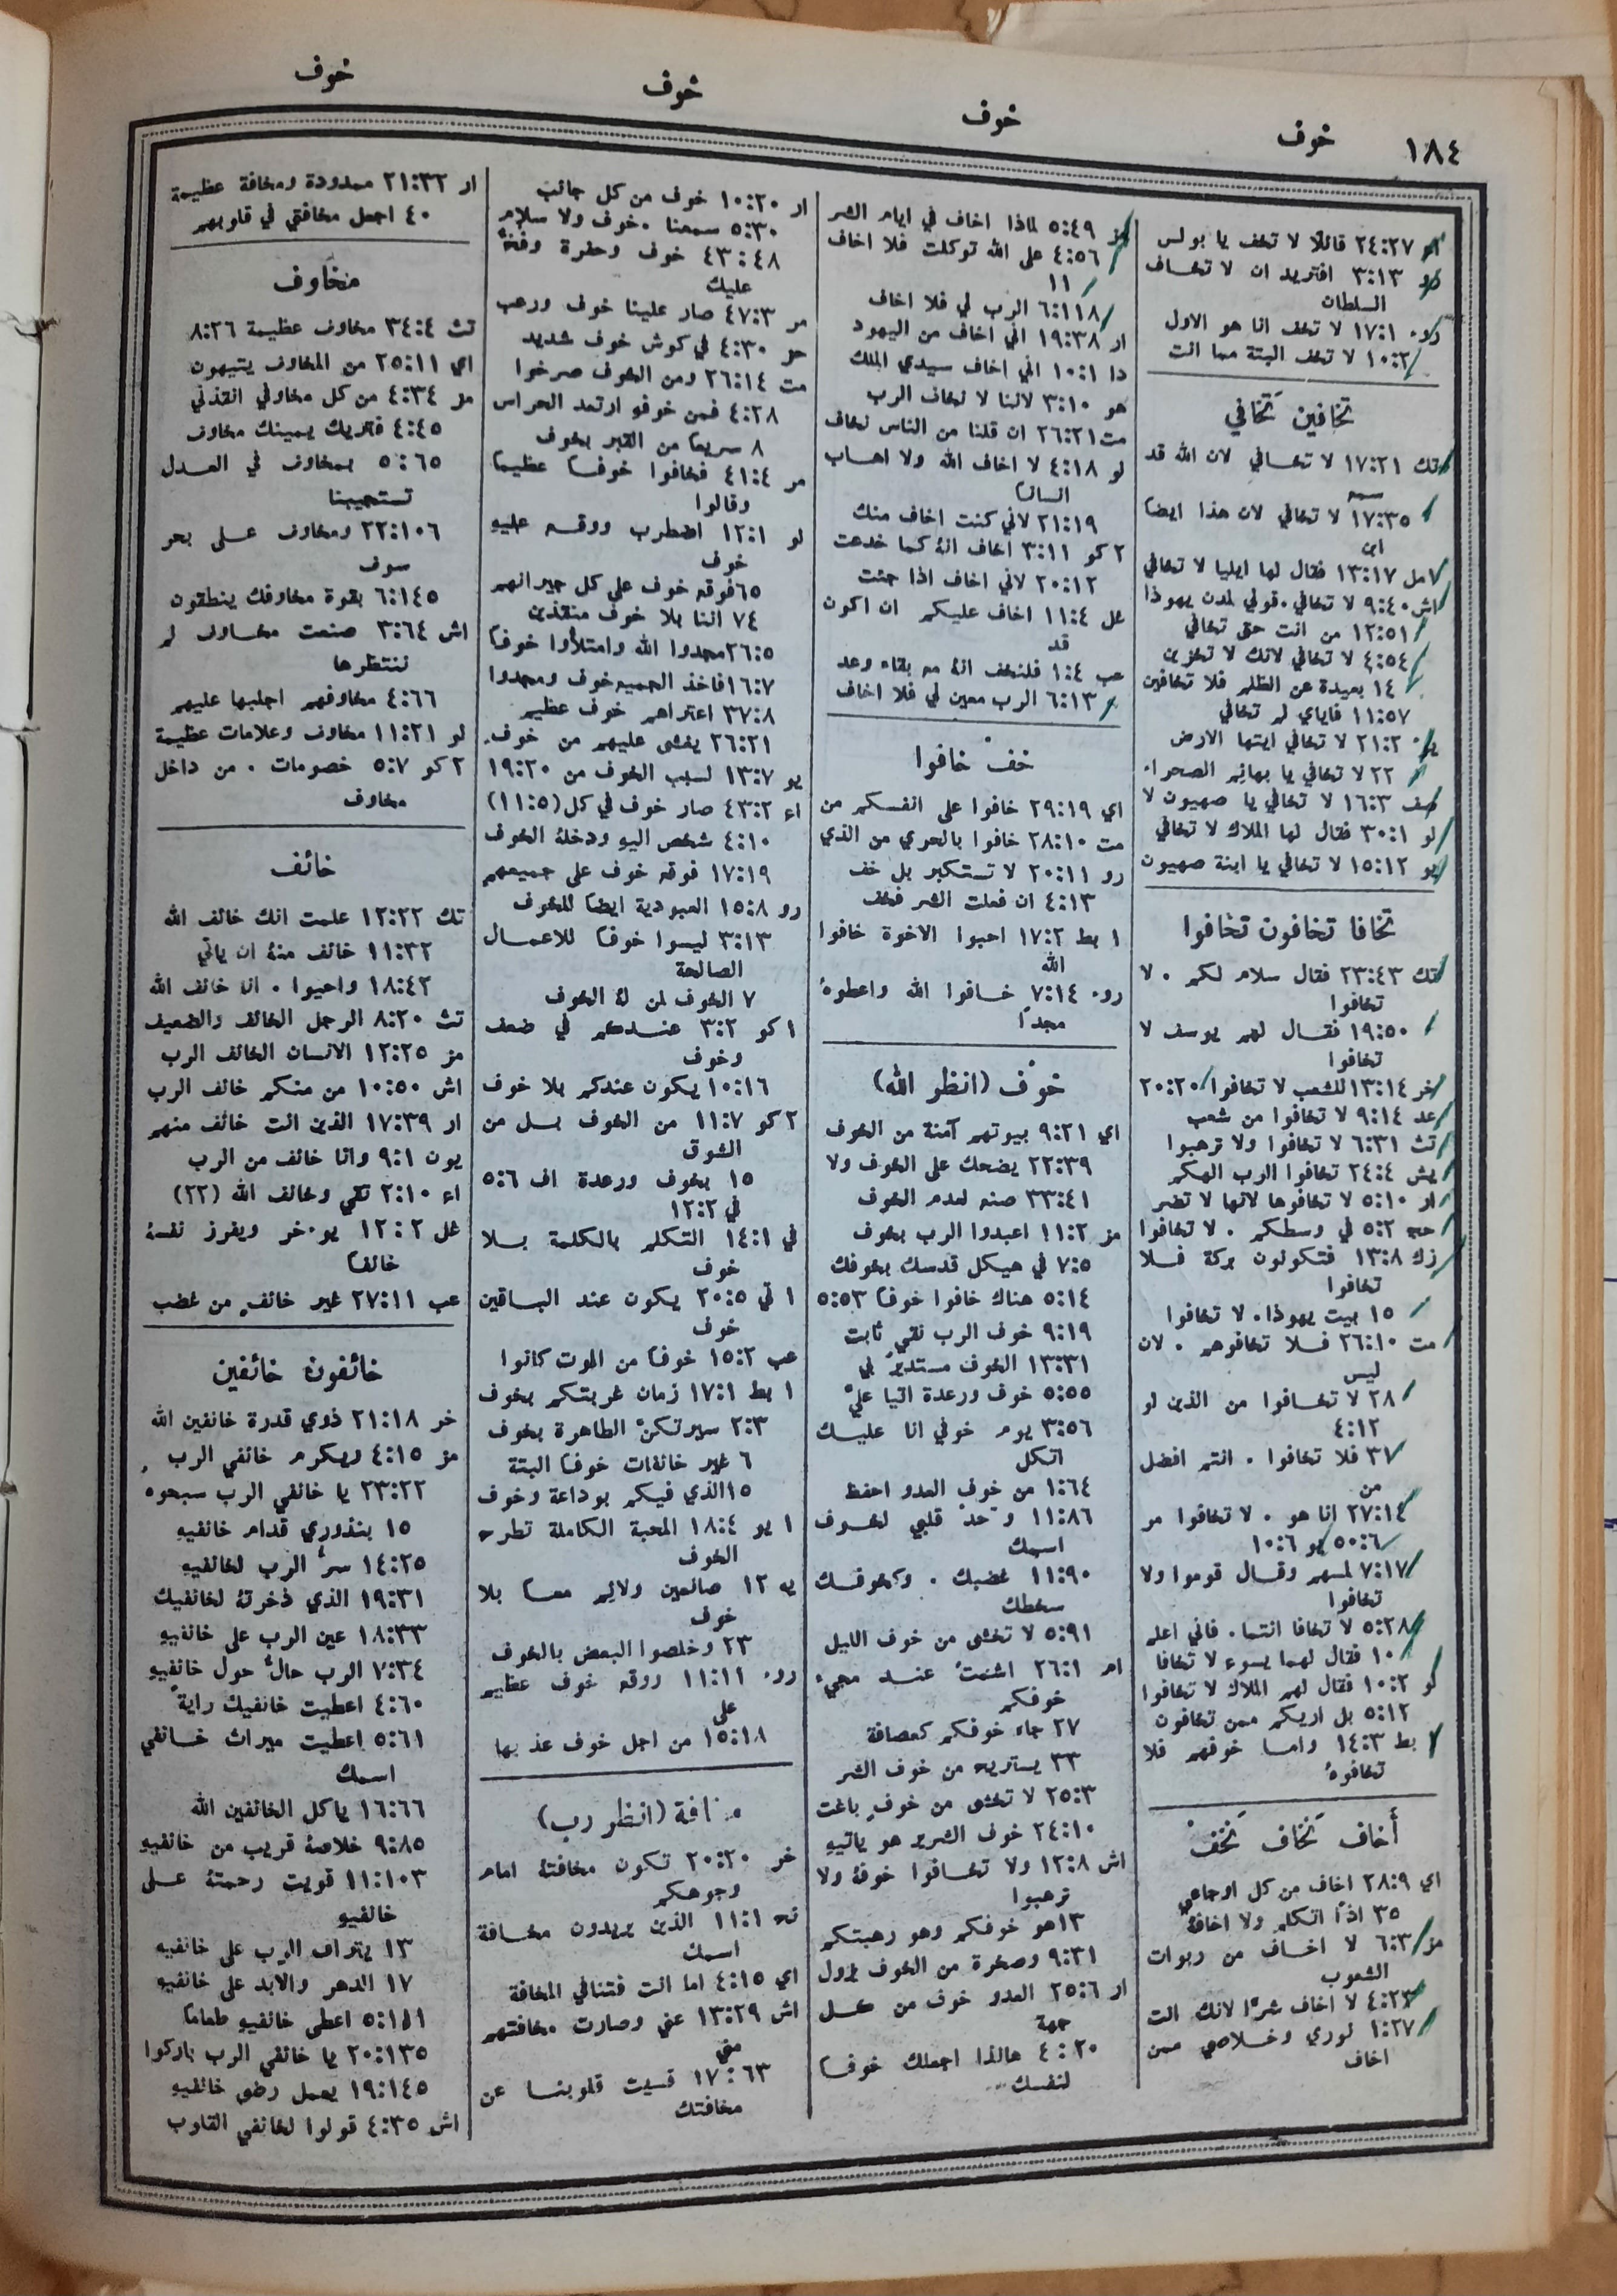 ١٨٤
خوف
خوف
خوف
خوف
٢٤:٢٧ قائلًا لا تخف يا بولس
رو ٣:١٣ افتريد ان لا تخاف
السلطان
روء ١٧:١ لا تخف انا هو الاول
١٠:٢ لا تخف البتة مما انت
تخافين تَخافي
تك ١٧:٢١ لا تخافي لان الله قد
سمع
١٧:٣٥ لا تخافي لان هذا ايضا
ابن
١مل ١٣:١٧ فقال لها ايليا لا تخافي
اش ٩:٤٠ لا تخافي . قولي لمدن يهوذا
١٢:٥١ من انت حتى تخافي
٤:٥٤ لا تخافي لانك لا تخزين
١٤ بعيدة عن الظلم فلا تخافين
١١:٥٧ فاياي لم تخافي
يوء ٢١:٢ لا تخافي ايتها الارض
٢٢ لا تخافي يا بهائم الصحراء
صف ١٦:٣ لا تخافي يا صهيون لا
لو ٣٠:١ فقال لها الملاك لا تخافي
يو ١٥:١٢ لا تخافي يا ابنة صهيون
تخافا تخافون تخافوا
تك ٢٣:٤٣ فقال سلام لكم . لا
تخافوا
١٩:٥٠ فقال لهم يوسف لا
تخافوا
خر ١٣:١٤ للشعب لا تخافوا ٢٠:٢٠
عد ٩:١٤ لا تخافوا من شعب
تث ٦:٣١ لا تخافوا ولا ترهبوا
يش ٢٤:٤ تخافوا الرب الهكم
ار ٥:١٠ لا تخافوها لانها لا تضر
حج ٥:٢ في وسطكم . لا تخافوا
زك ١٣:٨ فتكونون بركة فلا
تخافوا
١٥ بيت يهوذا. لا تخافوا
مت ٢٦:١٠ فلا تخافوهم . لان
ليس
٢٨ لا تخافوا من الذين لو
٤:١٢
٣١ فلا تخافوا . انتم افضل
من
٢٧:١٤ انا هو . لا تخافوا مر
٥٠:٦ يو ١٠:٦
٧:١٧ لمسهم وقال قوموا ولا
تخافوا
٥:٢٨ لا تخافا انتما. فاني اعلم
١٠ فقال لهما يسوع لا تخافا
لو ١٠:٢ فقال لهم الملاك لا تخافوا
٥:١٢ بل اريكم ممن تخافون
١ بط ١٤:٣ واما خوفهم فلا
تخافوهُ
أخاف نَخاف نَخفْ
اي ٢٨:٩ اخاف من كل اوجاعي
٣٥ اذًا اتكلم ولا اخافهُ
مز ٦:٣ لا اخاف من ربوات
الشعوب
٤:٢٣ لا اخاف شرًا لانك انت
١:٢٧ نوري وخلاصي ممن
اخاف
مز ٥:٤٩ لماذا اخاف في ايام الشر
٤:٥٦ على الله توكلت فلا اخاف
١١
٦:١١٨ الرب لي فلا اخاف
ار ١٩:٣٨ اني اخاف من اليهود
دا ١٠:١ اني اخاف سيدي الملك
هو ٣:١٠ لاننا لا نخاف الرب
مت ٢٦:٢١ ان قلنا من الناس نخاف
لو ٤:١٨ لا اخاف الله ولا اهاب
انسانا
٢١:١٩ لاني كنت اخاف منك
٢ كو ٣:١١ اخاف انهُ كما خدعت
٢٠:١٢ لاني اخاف اذا جئت
غل ١١:٤ اخاف عليكم ان اكون
قد
عب ١:٤ فلنخف انهُ مع بقاء وعد
٦:١٣ الرب معين لي فلا اخاف
خفْ خافوا
اي ٢٩:١٩ خافوا على انفسكم من
مت ٢٨:١٠ خافوا بالحري من الذي
رو ٢٠:١١ لا تستكبر بل خف
٤:١٣ ان فعلت الشر فخف
١ بط ١٧:٢ احبوا الاخوة خافوا
الله
روء ٧:١٤ خافوا الله واعطوهُ
مجدًا
خوْف (انظر الله)
اي ٩:٢١ بيوتهم آمنة من الخوف
٢٢:٣٩ يضحك على الخوف ولا
٣٣:٤١ صنع لعدم الخوف
مز ١١:٢ اعبدوا الرب بخوف
٧:٥ في هيكل قدسك بخوفك
٥:١٤ هناك خافوا خوفًا ٥:٥٣
٩:١٩ خوف الرب نقي ثابت
١٣:٣١ الخوف مستدير بي
٥:٥٥ خوف ورعدة اتيا عليَّ
٣:٥٦ يوم خوفي انا عليك
اتكل
١:٦٤ من خوف العدو احفظ
١١:٨٦ وحد قلبي لخوف
اسمك
١١:٩٠ غضبك . وكخوفك
سخطك
٥:٩١ لا تخشى من خوف الليل
ام ٢٦:١ اشمت عند مجيء
خوفكم
٢٧ جاء خوفكم كعصافة
٣٣ يستريح من خوف الشر
٢٥:٣ لا تخشى من خوف باغت
٢٤:١٠ خوف الشرير هو ياتيهِ
اش ١٢:٨ ولا تخافوا خوفهُ ولا
ترهبوا
١٣ هو خوفكم وهو رهبتكم
٩:٣١ وصخرة من الخوف يزول
ار ٢٥:٦ العدو خوف من كل
جهة
٤:٢٠ هانذا اجعلك خوفًا
لنفسك
ار ١٠:٢٠ خوف من كل جانب
٥:٣٠ سمعنا . خوف ولا سلام
٤٣:٤٨ خوف وحفرة وفخ
عليك
مر ٤٧:٣ صار علينا خوف ورعب
حز ٤:٣٠ في كوش خوف شديد
مت ٢٦:١٤ ومن الخوف صرخوا
٤:٢٨ فمن خوفهِ ارتعد الحراس
٨ سريعا من القبر بخوف
مر ٤١:٤ فخافوا خوفًا عظيما
وقالوا
لو ١٢:١ اضطرب ووقع عليهِ
خوف
٦٥ فوقع خوف على كل جيرانهم
٧٤ اننا بلا خوف منقذين
٢٦:٥ مجدوا الله وامتلأوا خوفًا
١٦:٧ فاخذ الجميع خوف ومجدوا
٣٧:٨ اعتراهم خوف عظيم
٢٦:٢١ يغشى عليهم من خوف
يو ١٣:٧ لسبب الخوف من ١٩:٢٠
اع ٤٣:٢ صار خوف في كل (١١:٥)
٤:١٠ شخص اليهِ ودخلهُ الخوف
١٧:١٩ فوقع خوف على جميعهم
رو ١٥:٨ العبودية ايضا للخوف
٣:١٣ ليسوا خوفًا للاعمال
الصالحة
٧ الخوف لمن لهُ الخوف
١ كو ٣:٢ عندكم في ضعف
وخوف
١٠:١٦ يكون عندكم بلا خوف
٢ كو ١١:٧ من الخوف بل من
الشوق
١٥ بخوف ورعدة اف ٥:٦
في ١٢:٢
في ١٤:١ التكلم بالكلمة بلا
خوف
١ تي ٢٠:٥ يكون عند الباقين
خوف
عب ١٥:٢ خوفًا من الموت كانوا
١ بط ١٧:١ زمان غربتكم بخوف
٢:٣ سيرتكنَّ الطاهرة بخوف
٦ غير خائفات خوفًا البتة
١٥ الذي فيكم بوداعة وخوف
١ يو ١٨:٤ المحبة الكاملة تطرح
الخوف
يه ١٢ صانعين ولائم معا بلا
خوف
٢٣ وخلصوا البعض بالخوف
روء ١١:١١ ووقع خوف عظيم
على
١٥:١٨ من اجل خوف عذابها
مخافة (انظر رب)
خر ٢٠:٢٠ تكون مخافتهُ امام
وجوهكم
نح ١١:١ الذين يريدون مخافة
اسمك
اي ٤:١٥ اما انت فتنافي المخافة
اش ١٣:٢٩ عني وصارت مخافتهم
مني
١٧:٦٣ قسيت قلوبنا عن
مخافتك
ار ٢١:٣٢ ممدودة ومخافة عظيمة
٤٠ اجعل مخافتي في قلوبهم
مخاوف
تث ٣٤:٤ مخاوف عظيمة ٨:٢٦
اي ٢٥:١١ من المخاوف يتيهون
مز ٤:٣٤ من كل مخاوفي انقذني
٤:٤٥ فتريك يمينك مخاوف
٥:٦٥ بمخاوف في العدل
تستجيبنا
٢٢:١٠٦ ومخاوف على بحر
سوف
٦:١٤٥ بقوة مخاوفك ينطقون
اش ٣:٦٤ صنعت مخاوف لم
ننتظرها
٤:٦٦ مخاوفهم اجلبها عليهم
لو ١١:٢١ مخاوف وعلامات عظيمة
٢ كو ٥:٧ خصومات . من داخل
مخاوف
خائف
تك ١٢:٢٢ علمت انك خائف الله
١١:٣٢ خائف منهُ ان ياتي
١٨:٤٢ واحيوا . انا خائف الله
تث ٨:٢٠ الرجل الخائف والضعيف
مز ١٢:٢٥ الانسان الخائف الرب
اش ١٠:٥٠ من منكم خائف الرب
ار ١٧:٣٩ الذين انت خائف منهم
يون ٩:١ وانا خائف من الرب
اع ٢:١٠ تقي وخائف الله (٢٢)
غل ١٢:٢ يوءخر ويفرز نفسهُ
خائفا
عب ٢٧:١١ غير خائف من غضب
خائفون خائفين
خر ٢١:١٨ ذوي قدرة خائفين الله
مز ٤:١٥ ويكرم خائفي الرب
٢٣:٢٢ يا خائفي الرب سبحوه
١٥ بنذوري قدام خائفيهِ
١٤:٢٥ سرُّ الرب لخائفيهِ
١٩:٣١ الذي ذخرتهُ لخائفيك
١٨:٣٣ عين الرب على خائفيهِ
٧:٣٤ الرب حالٌّ حول خائفيهِ
٤:٦٠ اعطيت خائفيك رايةً
٥:٦١ اعطيت ميراث خائفي
اسمك
١٦:٦٦ يا كل الخائفين الله
٩:٨٥ خلاصهُ قريب من خائفيهِ
١١:١٠٣ قويت رحمتهُ على
خائفيهِ
١٣ يتراف الرب على خائفيهِ
١٧ الدهر والابد على خائفيهِ
٥:١١١ اعطى خائفيهِ طعاما
٢٠:١٣٥ يا خائفي الرب باركوا
١٩:١٤٥ يعمل رضى خائفيهِ
اش ٤:٣٥ قولوا لخائفي القلوب